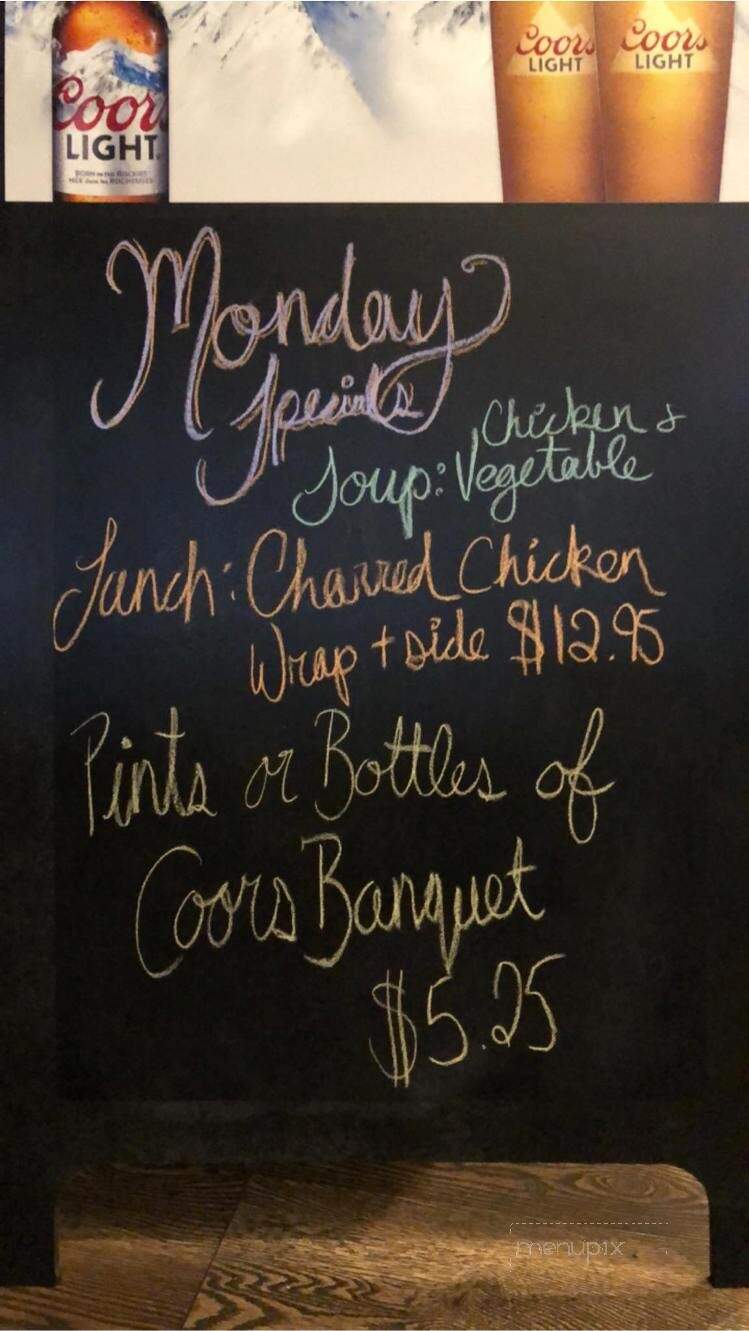 Coors
LIGHT
BORN IN THE ROCKIES
Coors
LIGHT
Coors
LIGHT
Monday
Specials
Soup: Chicken &
Vegetable
Lunch: Charred Chicken
Wrap + side $12.95
Pints or Bottles of
Coors Banquet
$5.25
menupix